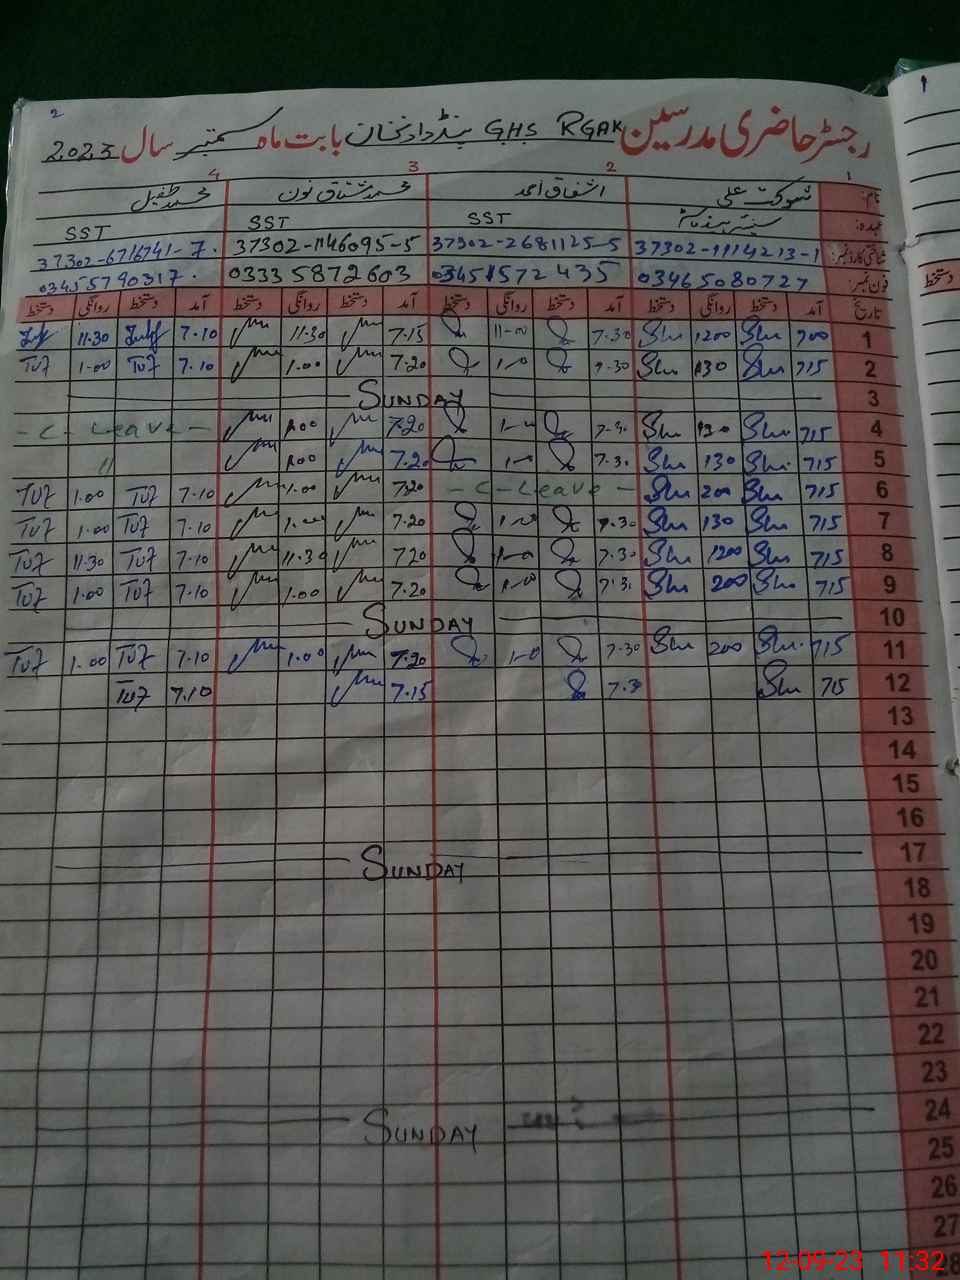 2
رجسٹر حاضری مدرسین GHS RGAK پنڈدادنخان بابت ماہ ستمبر سال 2023
1 2 3 4
نام: شوکت علی اشفاق احمد محمد مشتاق نون محمد طفیل
عہدہ: SST SST SST
شناختی کارڈ نمبر: 37302-1114213-1 37302-2681125-5 37302-1146095-5 37302-6716741-7
فون نمبر: 03465080727 03451572435 03335872603 03455790317
تاریخ آمد دستخط روانگی دستخط آمد دستخط روانگی دستخط آمد دستخط روانگی دستخط آمد دستخط روانگی دستخط
1 700 1200 7.30 11-00 7.15 11.30 7.10 11.30
2 715 130 7.30 1-0 7.20 1.00 7.10 TUF 1.00 TUF
3 SUNDAY
4 715 130 7-30 1-00 7.20 1.00 - C - Leave -
5 715 130 7.30 1-0 7.20 1.00 "
6 715 200 - C - Leave - 720 1.00 7.10 TUF 1.00 TUF
7 715 130 7.30 1-00 7.20 1.00 7.10 TUF 1.00 TUF
8 715 1200 7.30 1-0 720 11.30 7.10 TUF 11.30 TUF
9 715 200 7.30 1-00 7.20 1.00 7.10 TUF 1.00 TUF
10 SUNDAY
11 715 200 7.30 1-0 7.20 1.00 7.10 TUF 1.00 TUF
12 715 7.30 7.15 7.10 TUF
13
14
15
16
17 SUNDAY
18
19
20
21
22
23
24 SUNDAY
25
26
27
28
12-09-23 11:32
1
دستخط